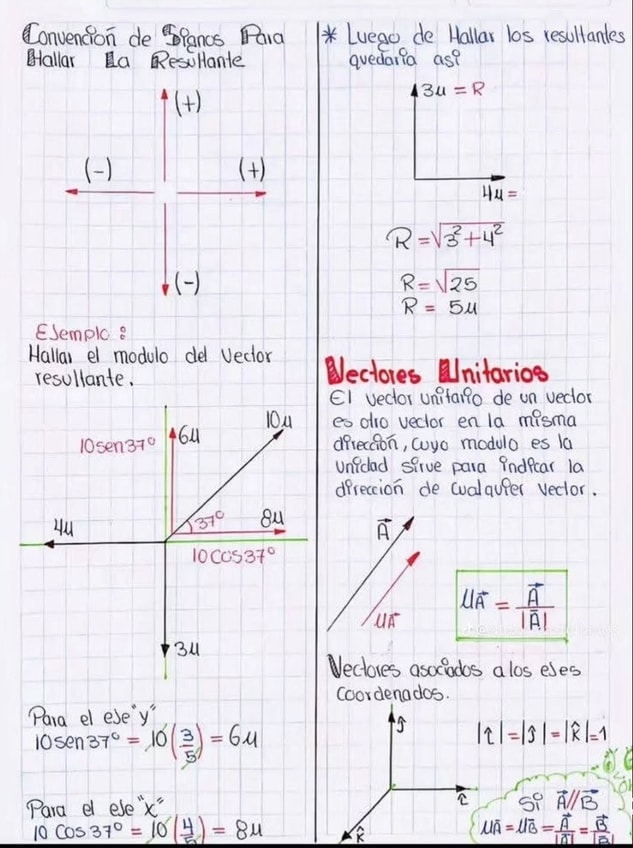 Convención de Signos Para
Hallar La Resultante
(+)
(-)
(+)
(-)
Ejemplo :
Hallar el modulo del vector
resultante.
10u
10sen37°
6u
37°
8u
4u
10cos37°
3u
Para el eje "y"
10sen37° = 10(3/5) = 6u
Para el eje "x"
10 Cos 37° = 10(4/5) = 8u
* Luego de Hallar los resultantes
quedaría así
3u = R
4u =
R = √3²+4²
R = √25
R = 5u
Vectores Unitarios
El vector unitario de un vector
es otro vector en la misma
dirección, cuyo modulo es la
unidad sirve para indicar la
dirección de cualquier vector.
A⃗
uA⃗
uA⃗ = A⃗/|A⃗|
Vectores asociados a los ejes
coordenados.
ĵ
|î|=|ĵ|=|k̂|=1
î
k̂
Si A⃗//B⃗
uA⃗ = uB⃗ = A⃗/|A⃗| = B⃗/|B⃗|